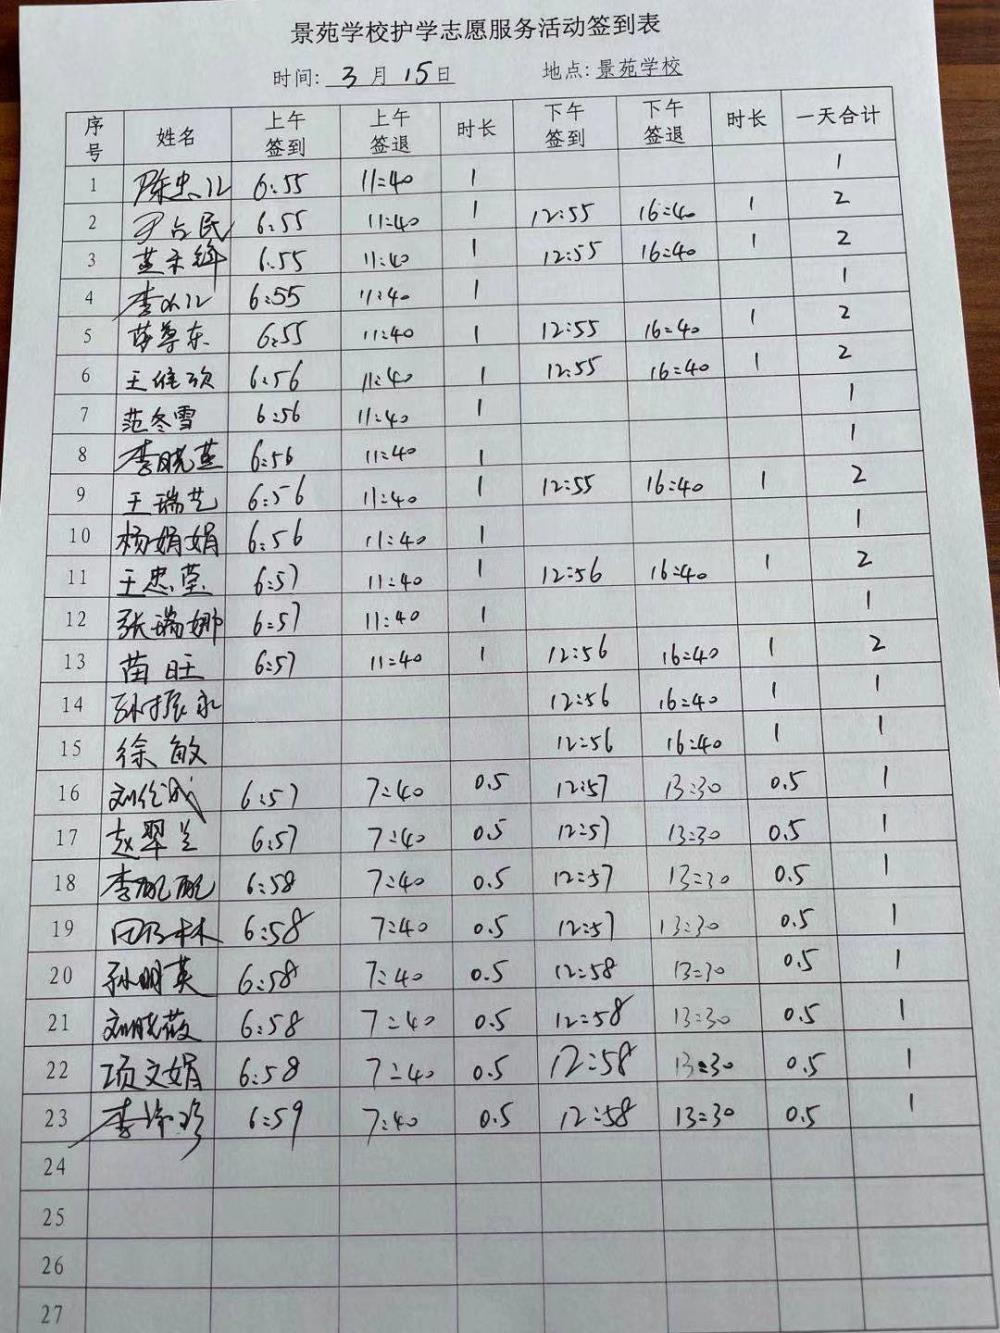 景苑学校护学志愿服务活动签到表
时间: 3 月 15 日 地点: 景苑学校
序号 姓名 上午签到 上午签退 时长 下午签到 下午签退 时长 一天合计
1 陈忠 6:55 11:40 1 1
2 尹占民 6:55 11:40 1 12:55 16:40 1 2
3 6:55 11:40 1 12:55 16:40 1 2
4 李 6:55 11:40 1 1
5 薛尊东 6:55 11:40 1 12:55 16:40 1 2
6 王维 6:56 11:40 1 12:55 16:40 1 2
7 范冬雪 6:56 11:40 1 1
8 李晓燕 6:56 11:40 1 1
9 王瑞艺 6:56 11:40 1 12:55 16:40 1 2
10 杨娟娟 6:56 11:40 1 1
11 王忠莹 6:57 11:40 1 12:56 16:40 1 2
12 张瑞娜 6:57 11:40 1 1
13 苗旺 6:57 11:40 1 12:56 16:40 1 2
14 孙振永 12:56 16:40 1 1
15 徐敏 12:56 16:40 1 1
16 刘 6:57 7:40 0.5 12:57 13:30 0.5 1
17 赵翠兰 6:57 7:40 0.5 12:57 13:30 0.5 1
18 李 6:58 7:40 0.5 12:57 13:30 0.5 1
19 田 林 6:58 7:40 0.5 12:57 13:30 0.5 1
20 孙明英 6:58 7:40 0.5 12:58 13:30 0.5 1
21 刘晓薇 6:58 7:40 0.5 12:58 13:30 0.5 1
22 项文娟 6:58 7:40 0.5 12:58 13:30 0.5 1
23 李 珍 6:59 7:40 0.5 12:58 13:30 0.5 1
24
25
26
27